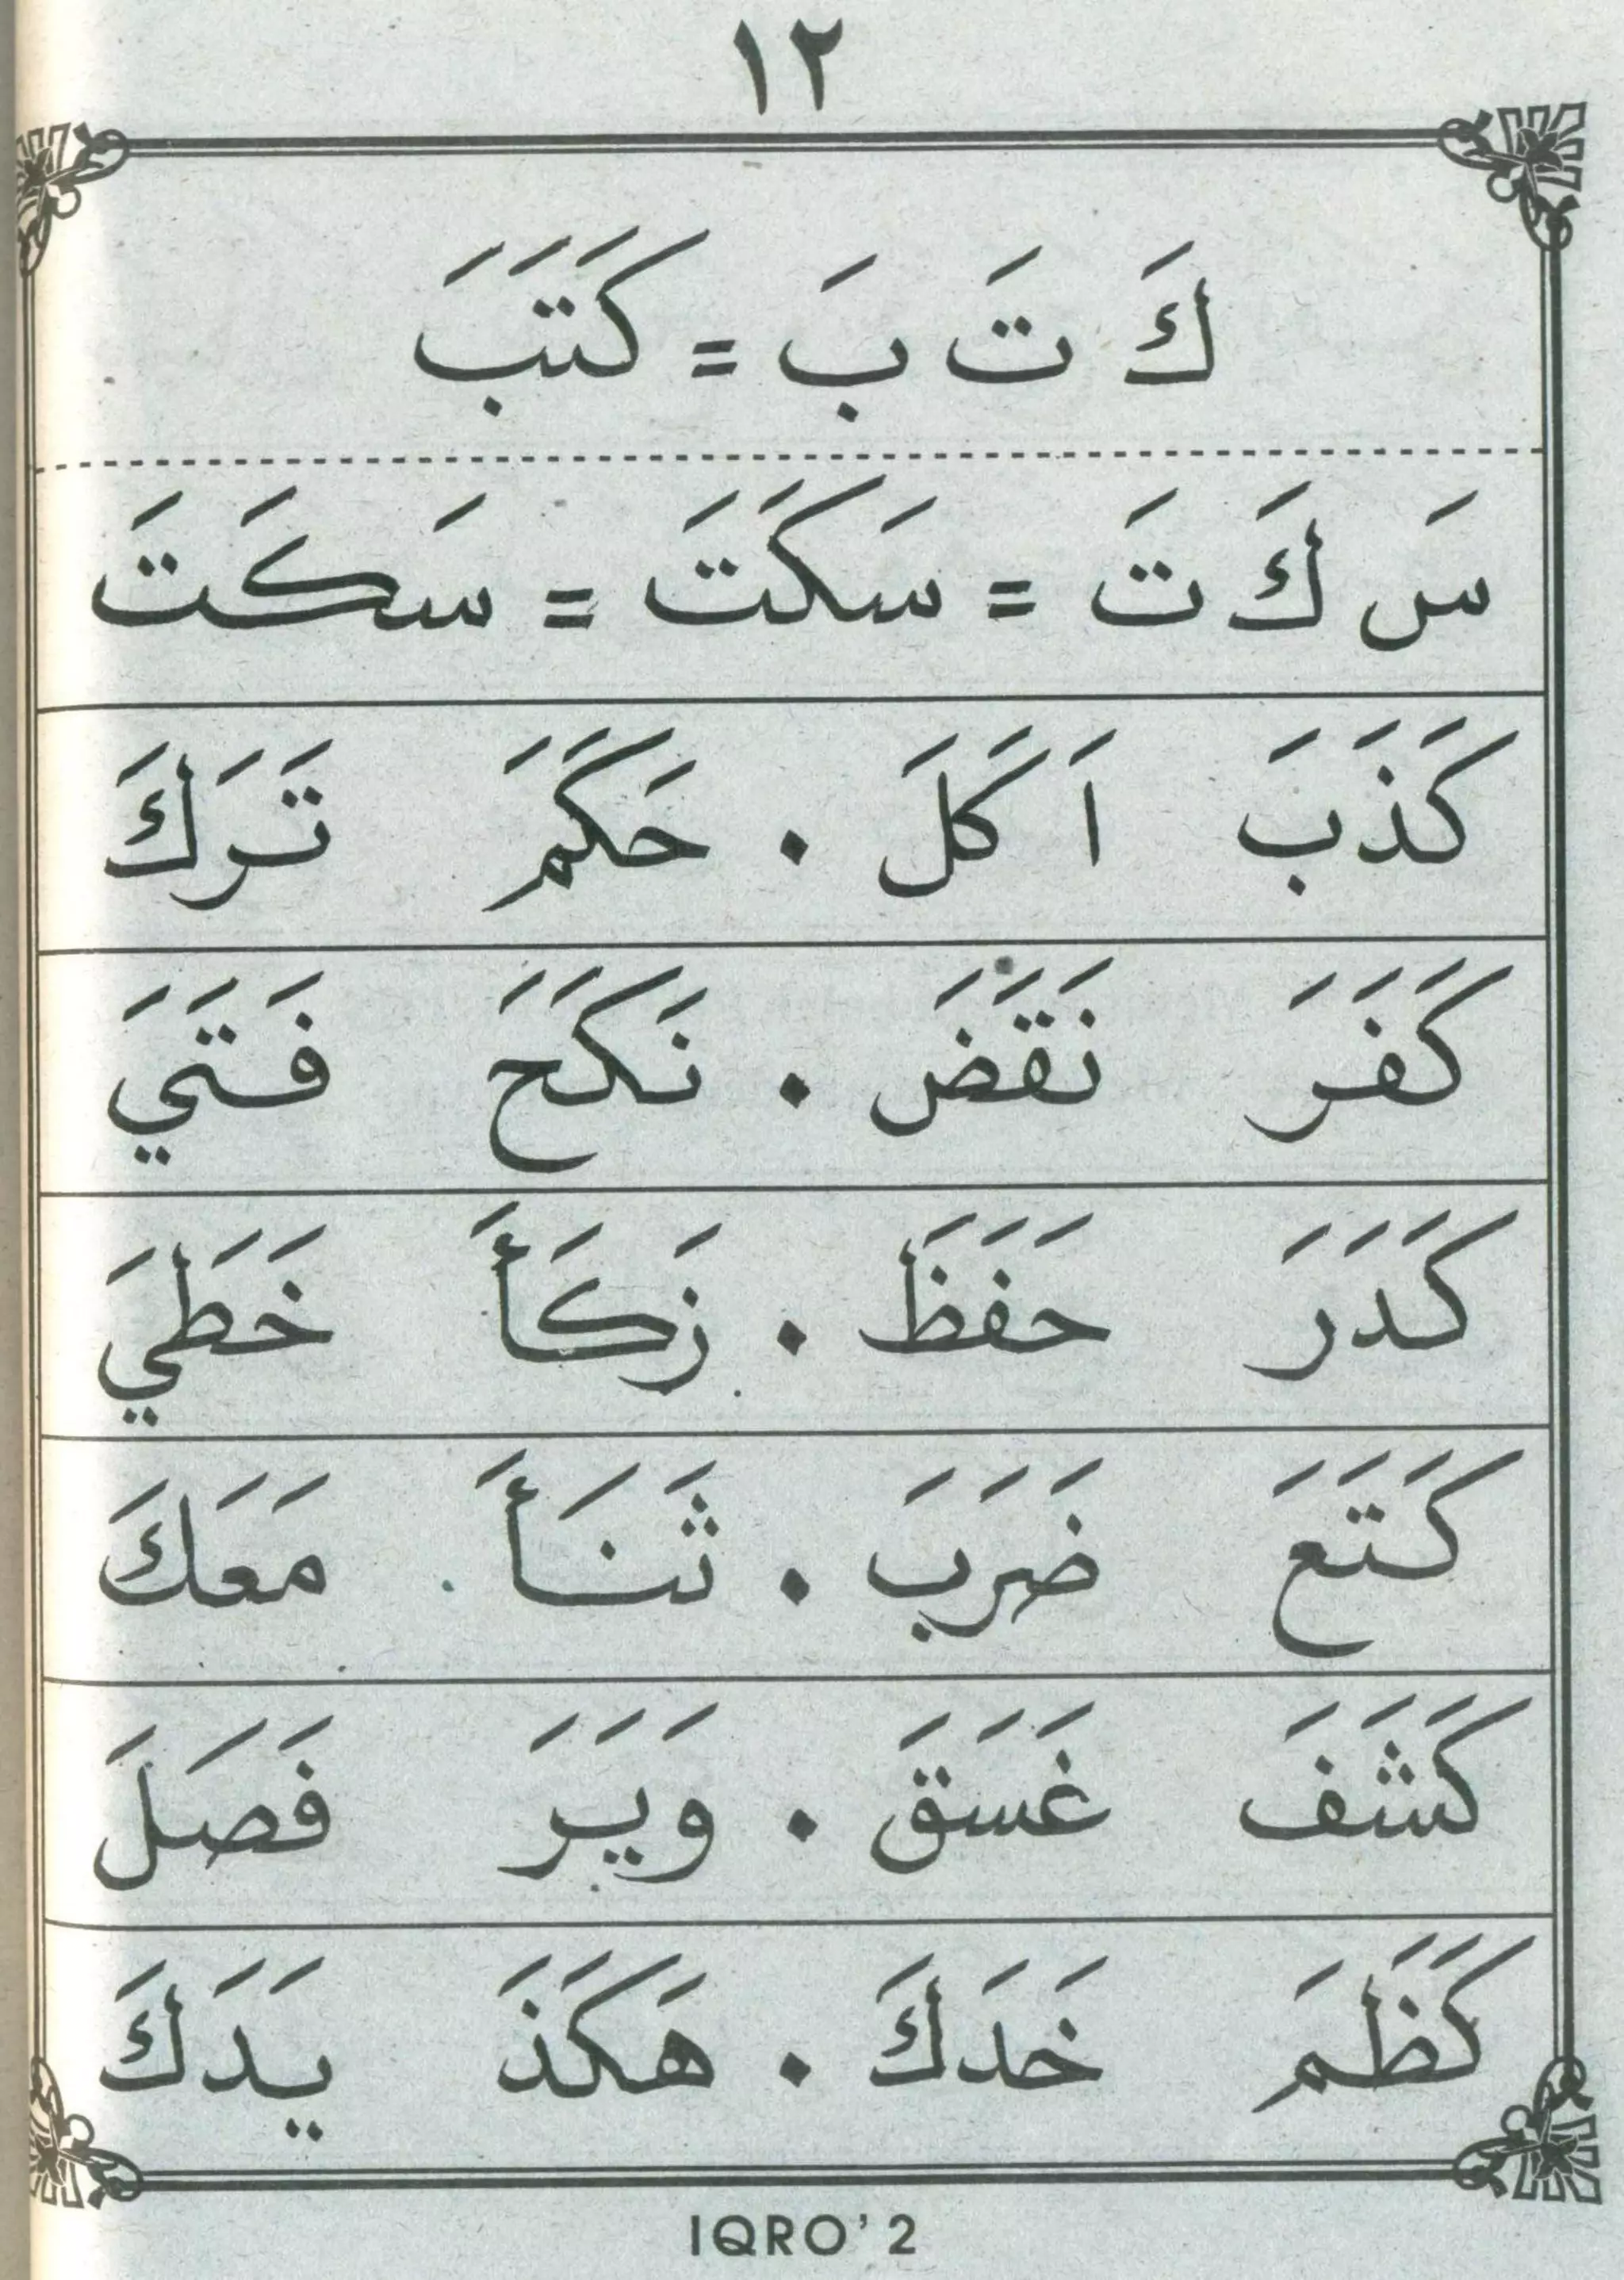 ١٢
كَ تَ بَ = كَتَبَ
سَ كَ تَ = سَكَتَ = سَكَتَ
كَذَبَ اَكَلَ . حَكَمَ تَرَكَ
كَفَرَ نَقَضَ . نَكَحَ فَتَيَ
كَدَرَ حَفَظَ . زَكَأَ خَطَيَ
كَتَعَ ضَرَبَ . ثَنَأَ مَعَكَ
كَشَفَ غَسَقَ . وَيَرَ فَصَلَ
كَظَمَ خَدَكَ . هَكَذَ يَدَكَ
IQRO' 2